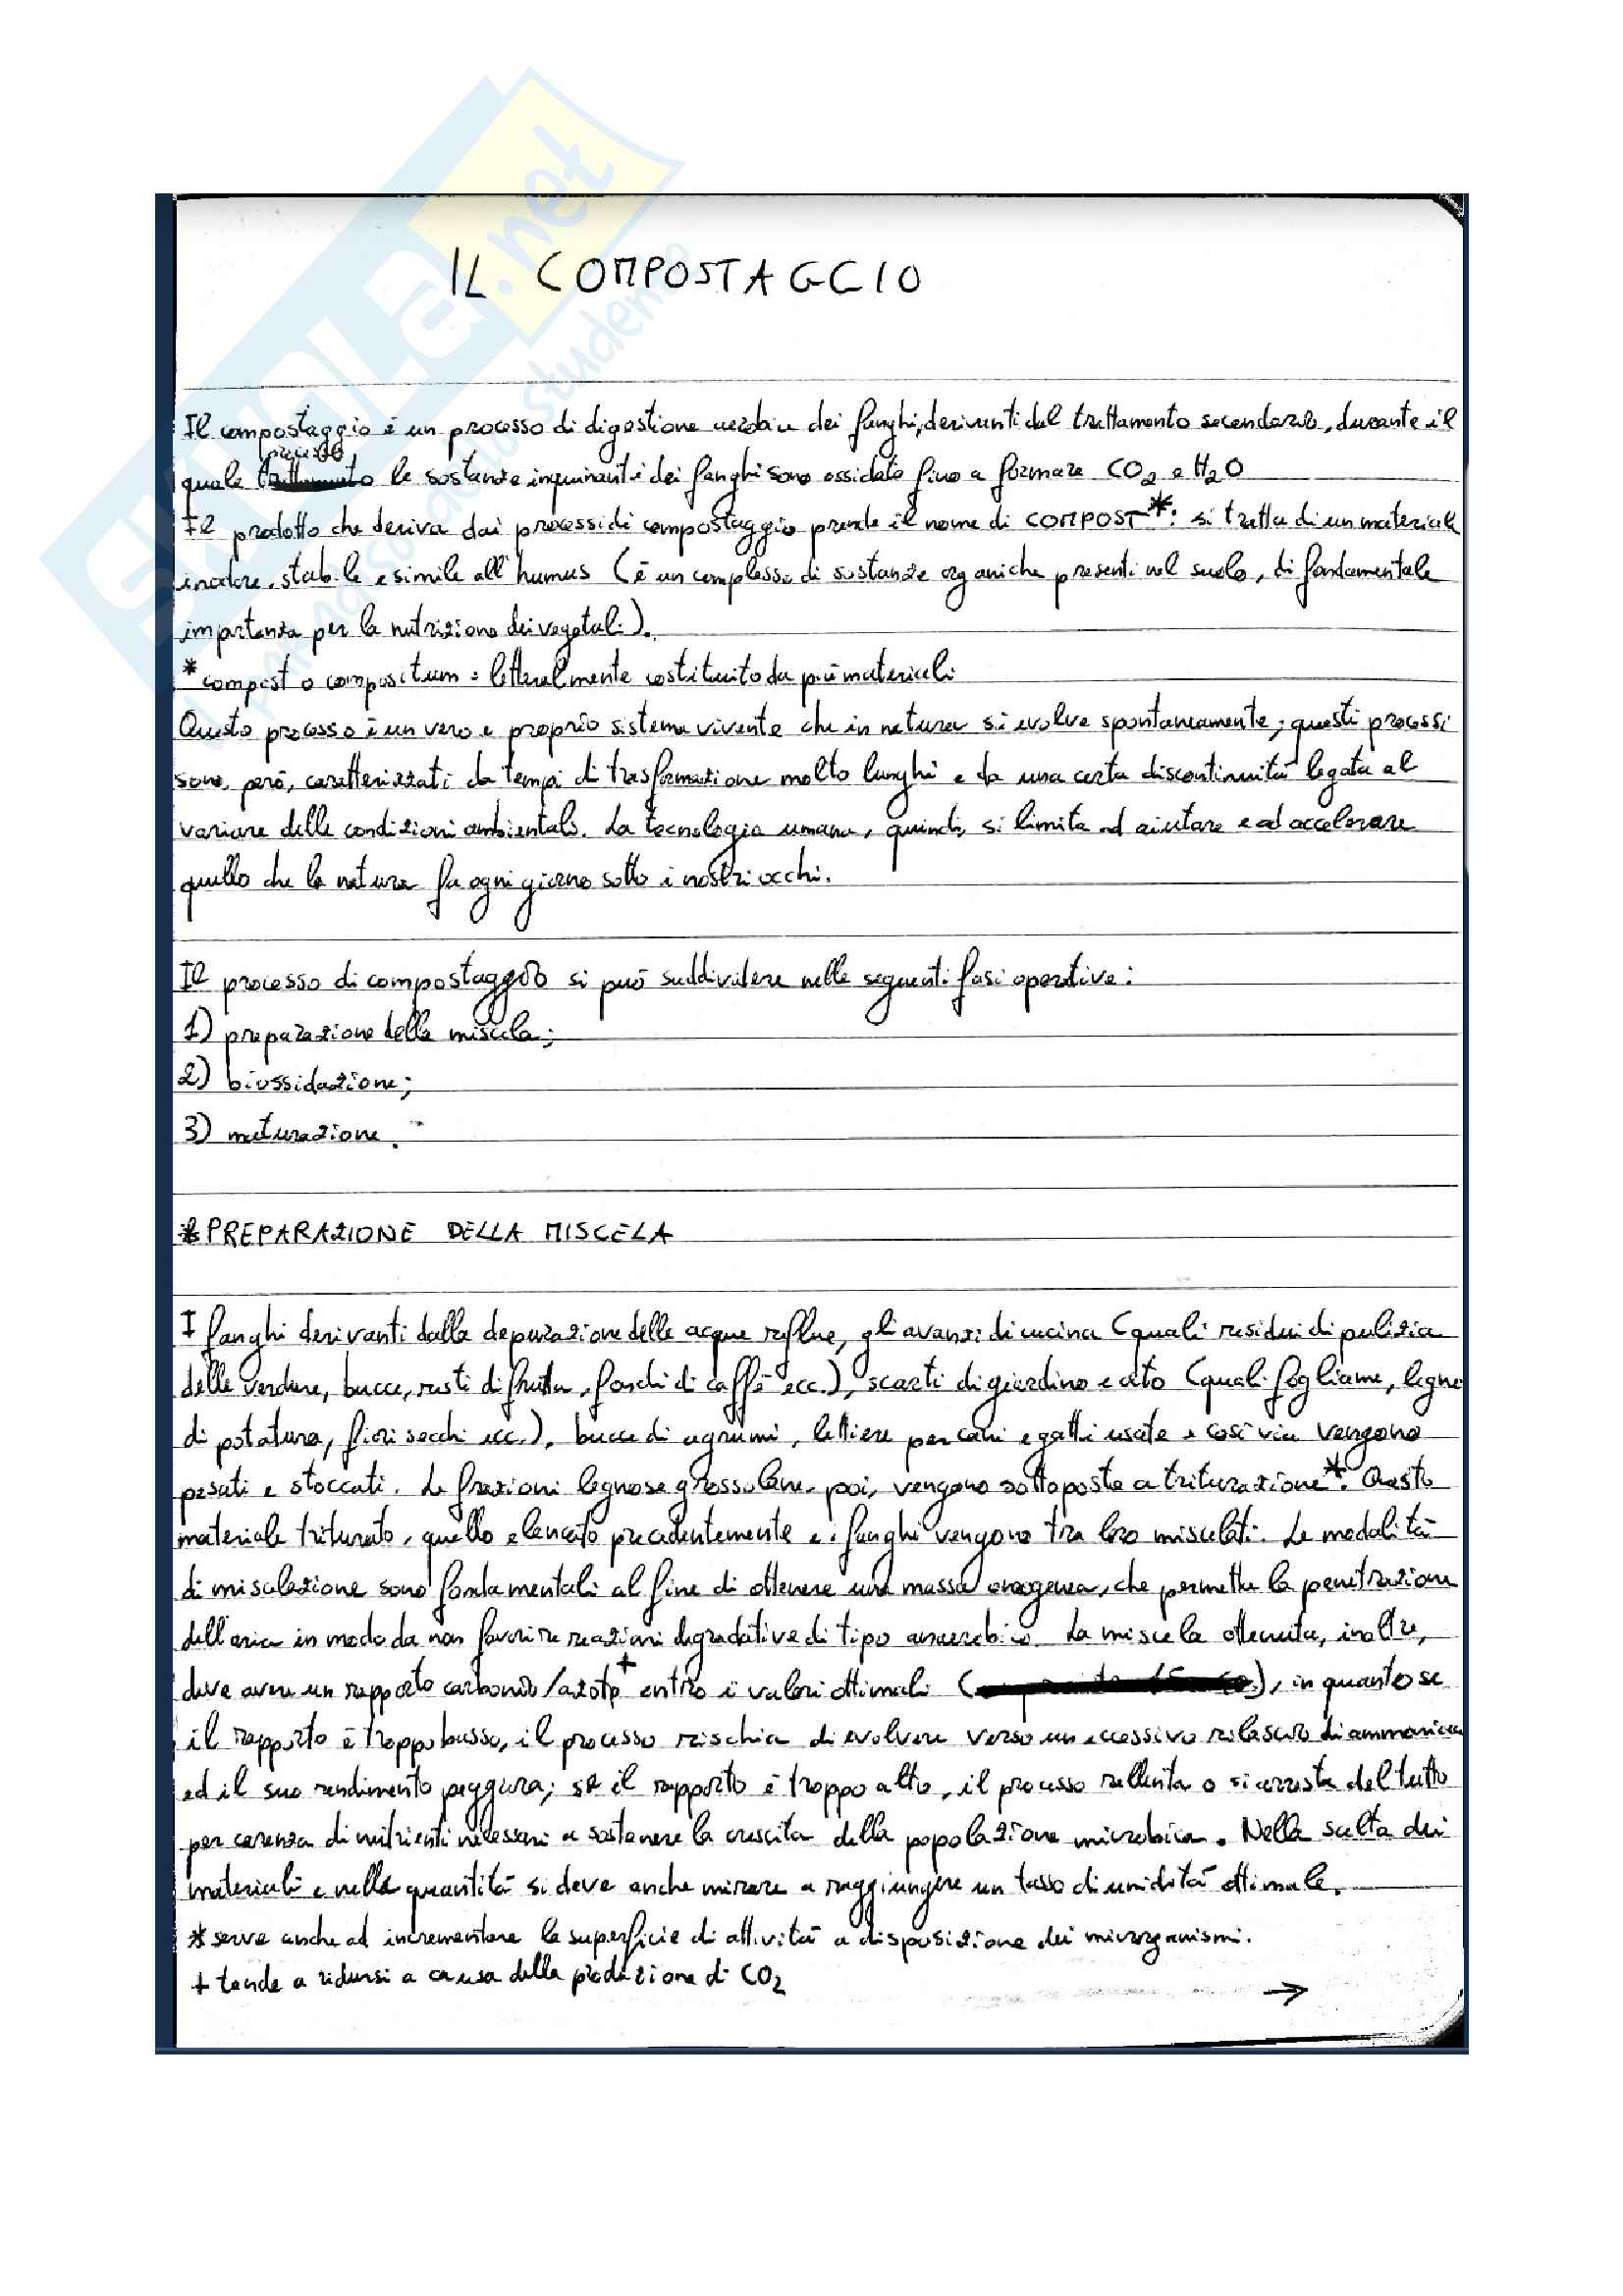 IL COMPOSTAGGIO
Il compostaggio è un processo di digestione aerobica dei fanghi, derivanti dal trattamento secondario, durante il
processo
quale le sostanze inquinanti dei fanghi sono ossidate fino a formare CO2 e H2O
Il prodotto che deriva dai processi di compostaggio prende il nome di COMPOST*: si tratta di un materiale
inodore, stabile e simile all'humus (è un complesso di sostanze organiche presenti nel suolo, di fondamentale
importanza per la nutrizione dei vegetali).
*compost o compositum = letteralmente costituito da più materiali
Questo processo è un vero e proprio sistema vivente che in natura si evolve spontaneamente; questi processi
sono, però, caratterizzati da tempi di trasformazione molto lunghi e da una certa discontinuità legata al
variare delle condizioni ambientali. La tecnologia umana, quindi, si limita ad aiutare e ad accelerare
quello che la natura fa ogni giorno sotto i nostri occhi.
Il processo di compostaggio si può suddividere nelle seguenti fasi operative:
1) preparazione della miscela;
2) biossidazione;
3) maturazione.
*PREPARAZIONE DELLA MISCELA
I fanghi derivanti dalla depurazione delle acque reflue, gli avanzi di cucina (quali residui di pulizia
delle verdure, bucce, resti di frutta, fondi di caffè ecc.), scarti di giardino e orto (quali fogliame, legno
di potatura, fiori secchi ecc.), bucce di agrumi, lettiere per cani e gatti usate e così via vengono
pesati e stoccati. Le frazioni legnose grossolane, poi, vengono sottoposte a triturazione*. Questo
materiale triturato, quello elencato precedentemente e i fanghi vengono tra loro miscelati. Le modalità
di miscelazione sono fondamentali al fine di ottenere una massa omogenea, che permetta la penetrazione
dell'aria in modo da non favorire reazioni degradative di tipo anaerobico. La miscela ottenuta, inoltre,
deve avere un rapporto carbonio/azoto+ entro i valori ottimali ( ), in quanto se
il rapporto è troppo basso, il processo rischia di evolvere verso un eccessivo rilascio di ammoniaca
ed il suo rendimento peggiora; se il rapporto è troppo alto, il processo rallenta o si arresta del tutto
per carenza di nutrienti necessari a sostenere la crescita della popolazione microbica. Nella scelta dei
materiali e nella quantità si deve anche mirare a raggiungere un tasso di umidità ottimale.
*serve anche ad incrementare la superficie di attività a disposizione dei microrganismi.
+ tende a ridursi a causa della produzione di CO2
→